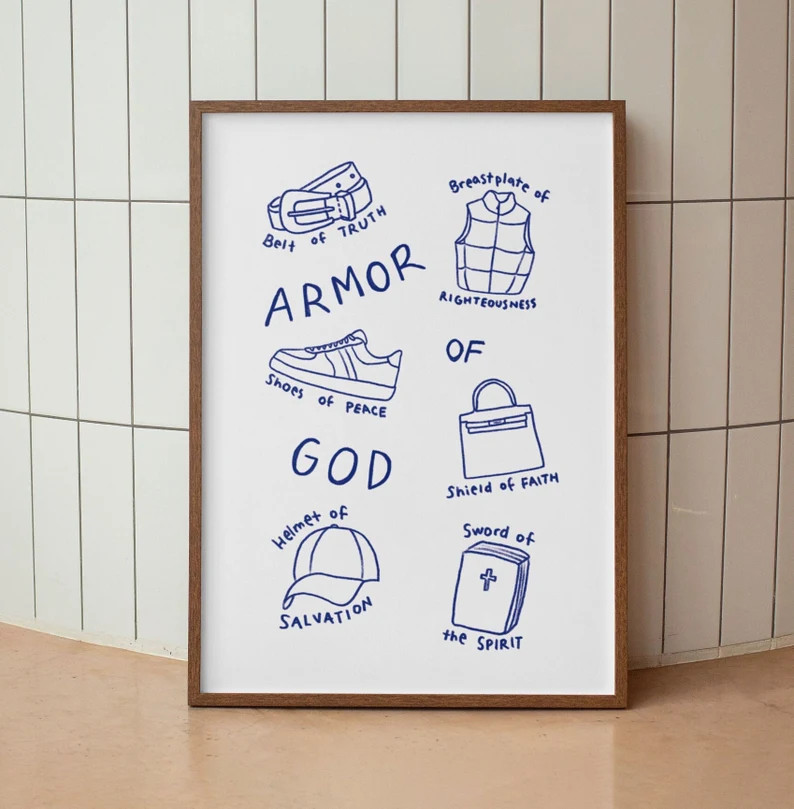 Belt of TRUTH
Breastplate of
RIGHTEOUSNESS
ARMOR
OF
Shoes of PEACE
GOD
Shield of FAITH
Helmet of
SALVATION
Sword of
the SPIRIT